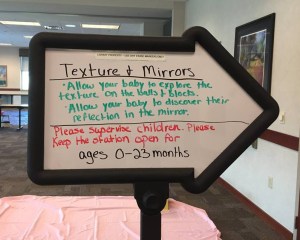 Texture & Mirrors
• Allow your baby to explore the
texture on the balls & blocks.
• Allow your baby to discover their
reflection in the mirror.
Please supervise children. Please
Keep the station open for
ages 0-23 months